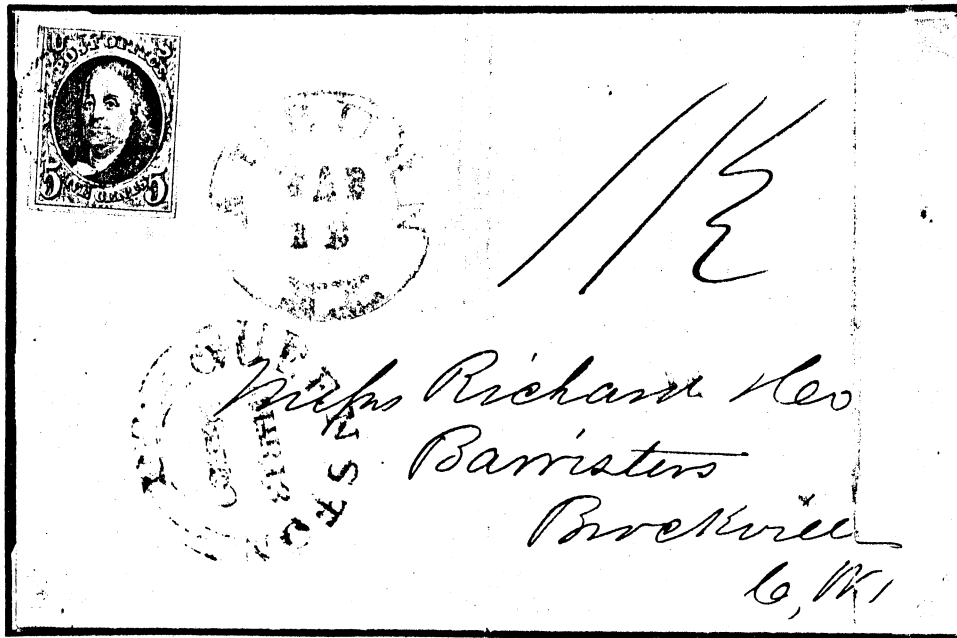 U S
POST OFFICE
5 FIVE CENTS 5
MAR
N.Y.
11½
QUEENSTON
Messrs Richards & Co
Barristers
Brockville
C, W,